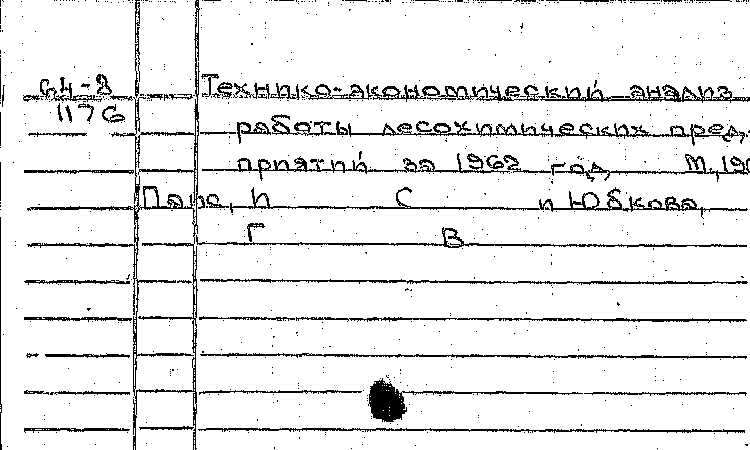 64-8
1176
Технико-экономический анализ
работы лесохимических пред-
приятий за 1962 год, М., 19
С и Юбкова,
Г В